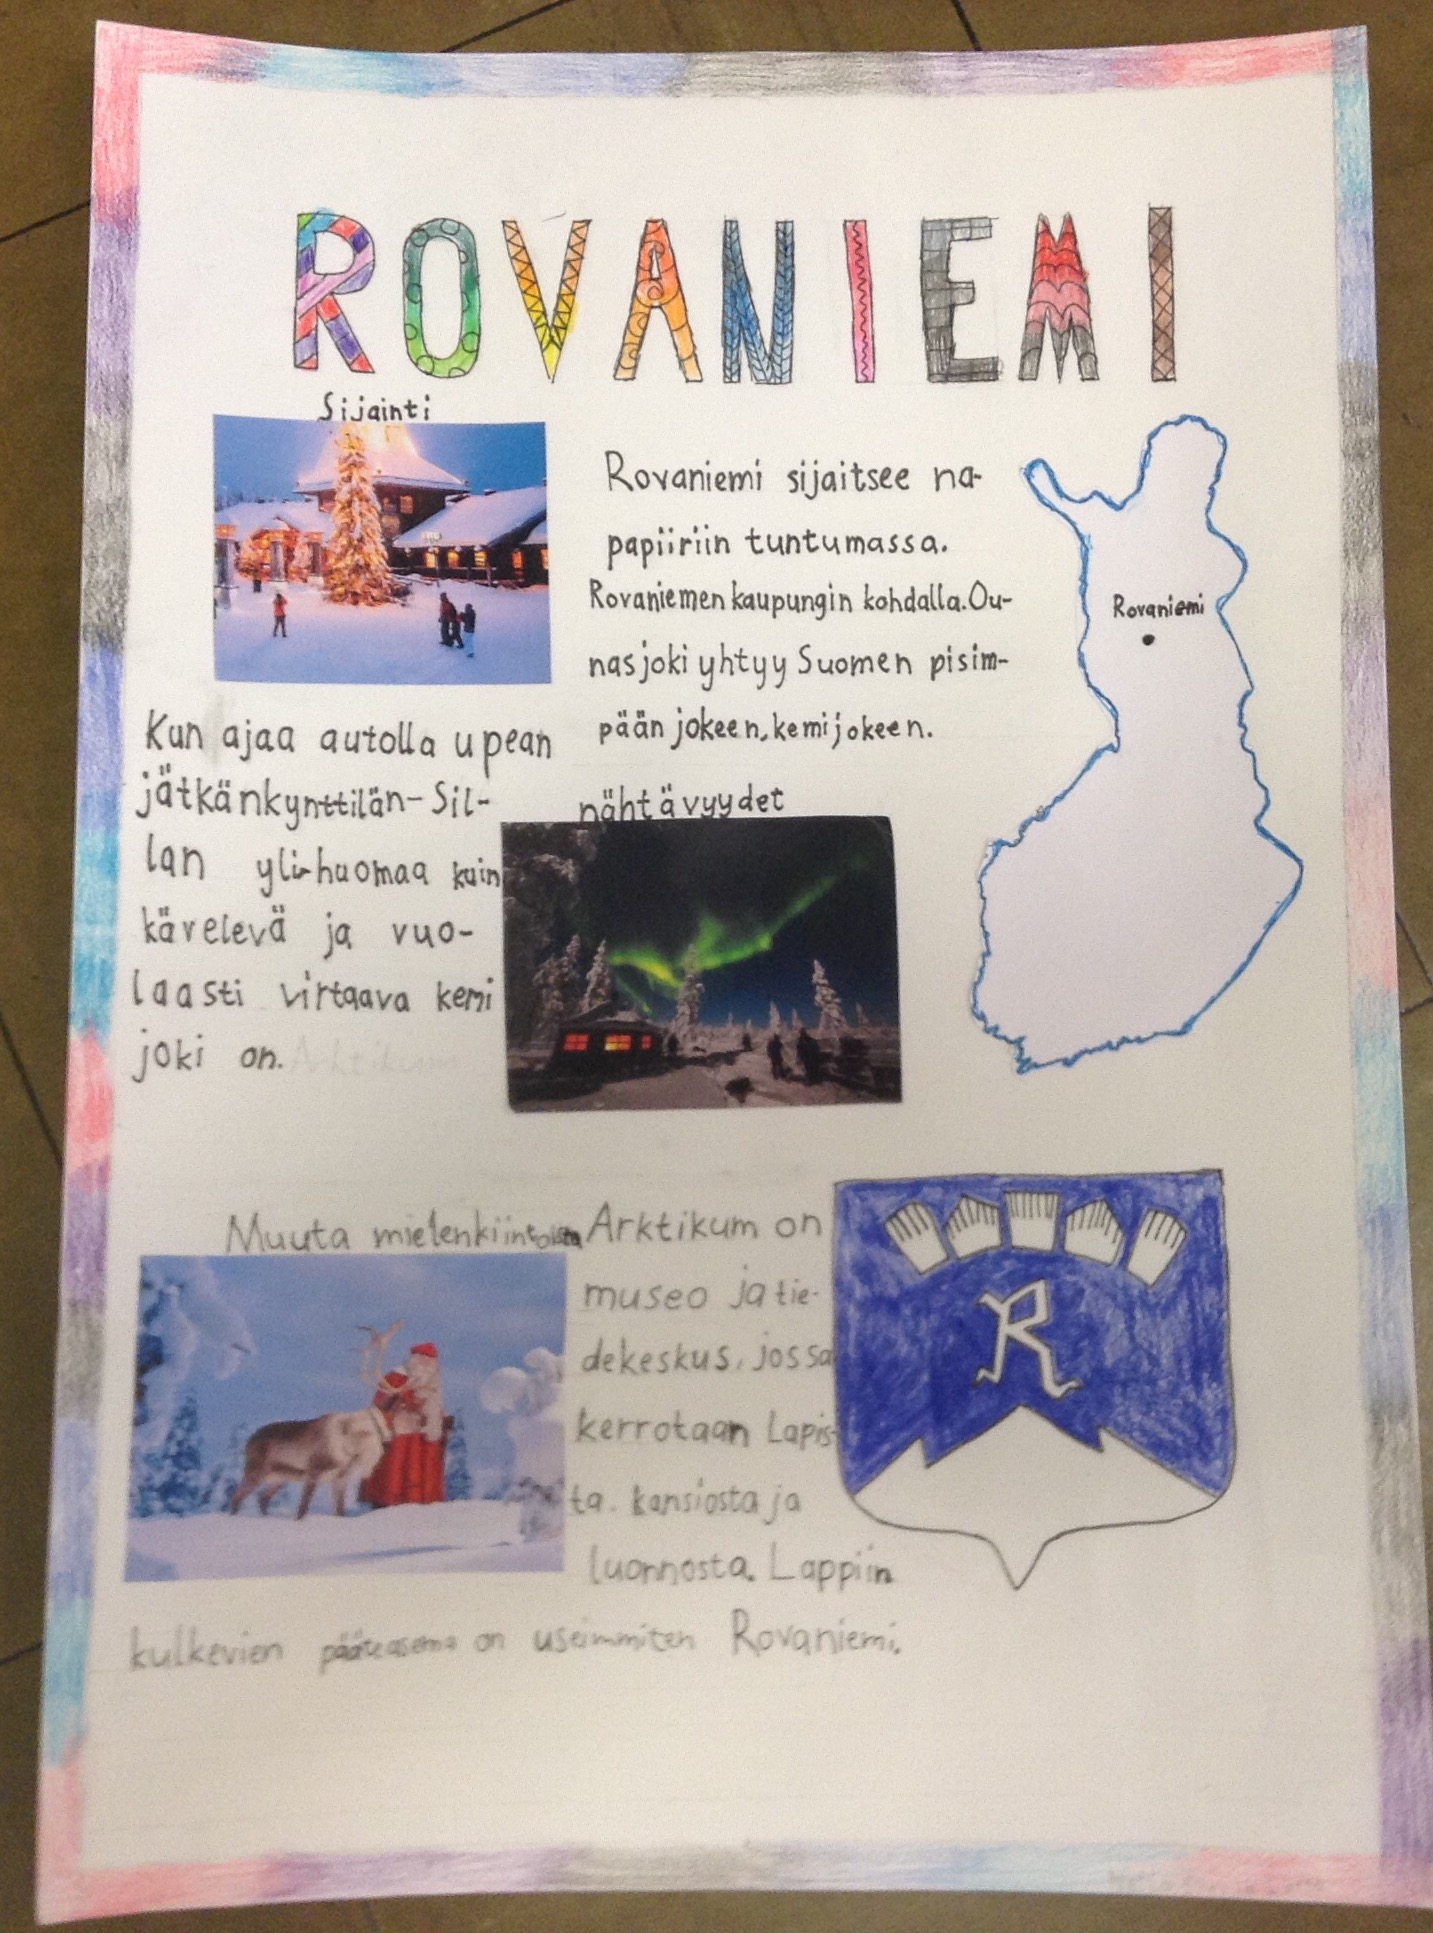 ROVANIEMI
Sijainti
Rovaniemi sijaitsee na-
papiiriin tuntumassa.
Rovaniemen kaupungin kohdalla. Ou-
nasjoki yhtyy Suomen pisim-
pään jokeen, kemijokeen.
Rovaniemi
Kun ajaa autolla upean
jätkänkynttilän-Sil-
lan yli huomaa kuin
kävelevä ja vuo-
laasti virtaava kemi
joki on.
nähtävyydet
Muuta mielenkiintoista
Arktikum on
museo ja tie-
dekeskus, jossa
kerrotaan Lapis-
ta. kansiosta ja
luonnosta. Lappiin
kulkevien pääteasema on useimmiten Rovaniemi.
R